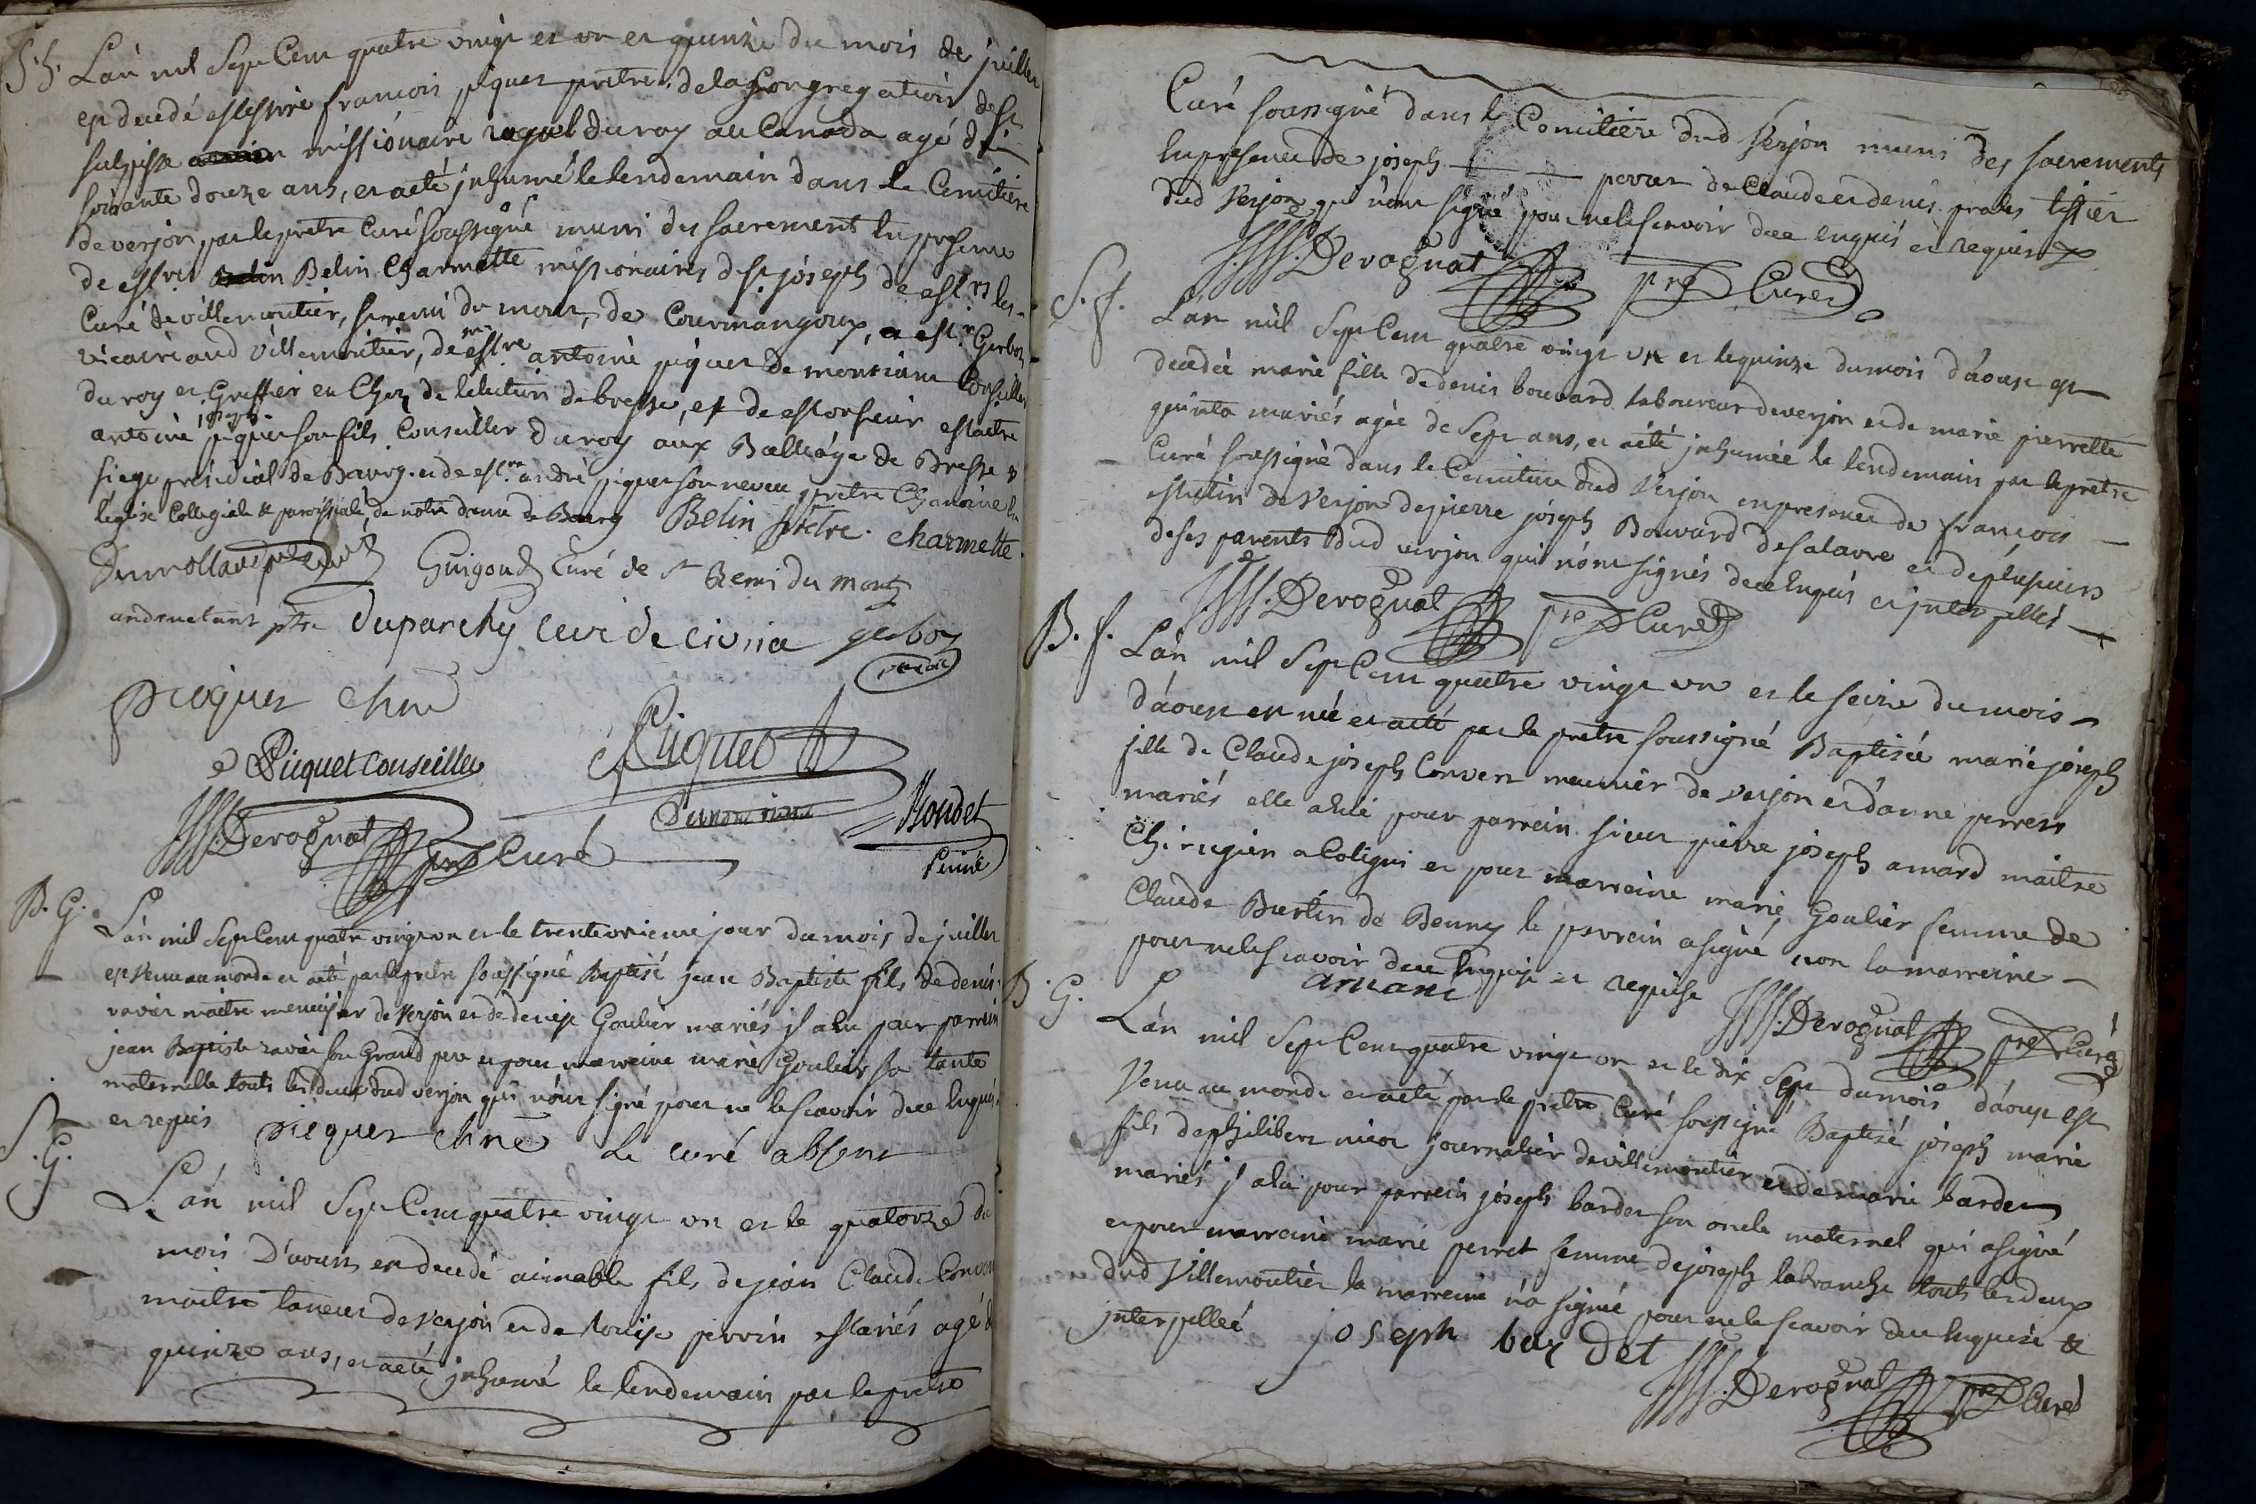 S. h. Lan mil Sept Cent quatre vingt et un et quinze du mois de juillet
est decedé Messire francois piquet pretre de la Congregation de St
sulpisse missionaire royal du roy au Canada agé de
soixante douze ans, et a eté jnhumé le lendemain dans le Cemitiere
de verjon par le pretre Curé soussigné muni des sacrement En presence
de Messrs Belin Charmette missionaires de St joseph de Messrs les
Curé de villemoutier, St remi du mont, de Courmangoux, Gerboz
vicaire aud villemoutier, de Messire antoine piquet de montciant Conseiller
du roy et Greffier en Chef de l'election de bresse, et de Monsieur Maitre
antoine joseph piquet son fils Conseiller du roy aux Balliage de Bresse &
siege présidial de Bourg et de Msre andré piquet son neveu pretre Chanoine En
l'eglise Collegiale & paroissiale de notre dame de Bourg Belin prêtre. charmette.
Guigoud Curé de St Remi du mont
ptre duparchy curé de civria gerboz
vicaire
picquet chne
Picquet Conseiller Piquet
Roudet
J.M. Derognat pre Curé
B. G. Lan mil Sept Cent quatre vingt un et le trente unieme jour du mois de juillet
est venu au monde et a eté par le pretre soussigné Baptisé jean Baptiste fils de denis
ravier maitre menuisier de verjon et de denise Goulier mariés jl a lu pour parrein
jean Baptiste ravier son Grand pere et pour marreine marie Goulier sa tante
maternelle touts les deux dud verjon qui n'ont signé pour ne le scavoir dee Enquis
et requis picquet chne Le curé absent
S. G. Lan mil Sept Cent quatre vingt un et le quatorze du
mois D'aoust est decedé aimable fils de jean Claude Convert
maitre taneur de verjon et de Louise perrin Mariés agé de
quinze ans, et a eté jnhumé le lendemain par le pretre
Curé soussigné dans le Cemitiere dud verjon muni des sacrements
En presence de joseph perret de Claude et denis prabis tissier
dud verjon qui n'ont signé pour ne le scavoir dee enquis et requis
J.M. Derognat pre Curé
S. f. Lan mil Sept Cent quatre vingt un et le quinze du mois d'aoust est
decedée marie fille de denis bouvard laboureur de verjon et de marie pierrette
quinta mariés agée de Sept ans, et a eté jnhumée le lendemain par le pretre
Curé soussigné dans le Cemitiere dud verjon en presence de francois
Mutin de verjon de pierre joseph Bouvard de salavre et de plusieurs
de ses parents dud verjon qui n'ont signés dee Enquis et jnterpellés
J.M. Derognat pre Curé
B. f. Lan mil Sept Cent quatre vingt un et le seize du mois
d'aoust est née et a eté par le pretre soussigné Baptisée marie joseph
fille de Claude joseph Convert meunier de verjon et d'anne perret
mariés elle a lué pour parrein sieur pierre joseph amard maitre
Chirugien a Coligni et pour marreine marie Goulier femme de
Claude Burtin de Benny le parrein a signé non la marreine
pour ne le scavoir dee Enquise et requise
amard J.M. Derognat pre Curé
B. G. Lan mil Sept Cent quatre vingt un et le dix Sept du mois d'aoust est
venu au monde et a eté par le pretre Curé soussigné Baptisé joseph marie
fils de philibert nicot journalier de villemoutier et de marie bardet
mariés jl a lu pour parrein joseph bardet son oncle maternel qui a signé
et pour marreine marie perret femme de joseph labranche touts les deux
dud villemoutier la marreine n'a signé pour ne le scavoir dee Enquise &
jnterpellée joseph bardet
J.M. Derognat pre Curé